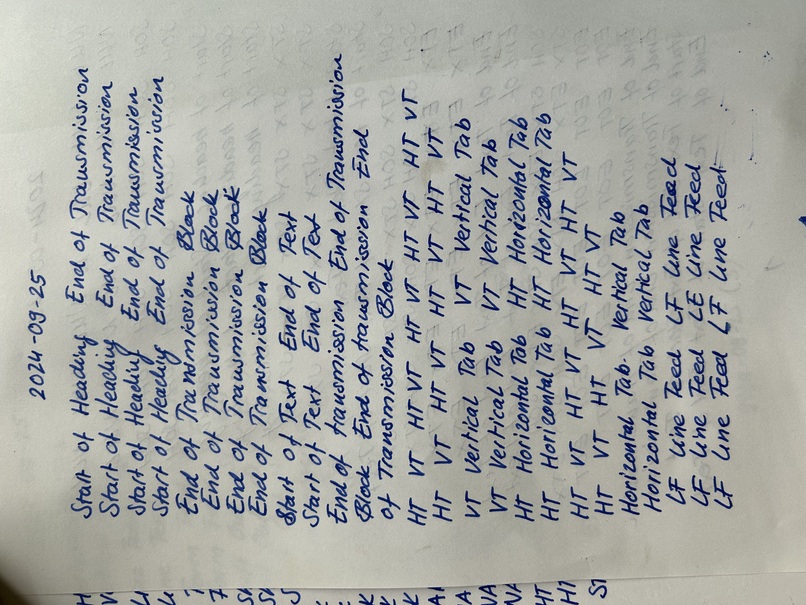 2024-09-25
Start of Heading End of Transmission
Start of Heading End of Transmission
Start of Heading End of Transmission
Start of Heading End of Transmission
End of Transmission Block
End of Transmission Block
End of Transmission Block
End of Transmission Block
Start of Text End of Text
Start of Text End of Text
End of transmission End of Transmission
Block End of transmission End
of Transmission Block
HT VT HT VT HT VT HT VT HT VT
HT VT HT VT HT VT HT VT
VT Vertical Tab VT Vertical Tab
VT Vertical Tab VT Vertical Tab
HT Horizontal Tab HT Horizontal Tab
HT Horizontal Tab HT Horizontal Tab
HT VT HT VT HT VT HT VT
HT VT HT VT HT VT
Horizontal Tab. Vertical Tab
Horizontal Tab Vertical Tab
LF Line Feed LF Line Feed
LF Line Feed LE Line Feed
LF Line Feed LF Line Feed